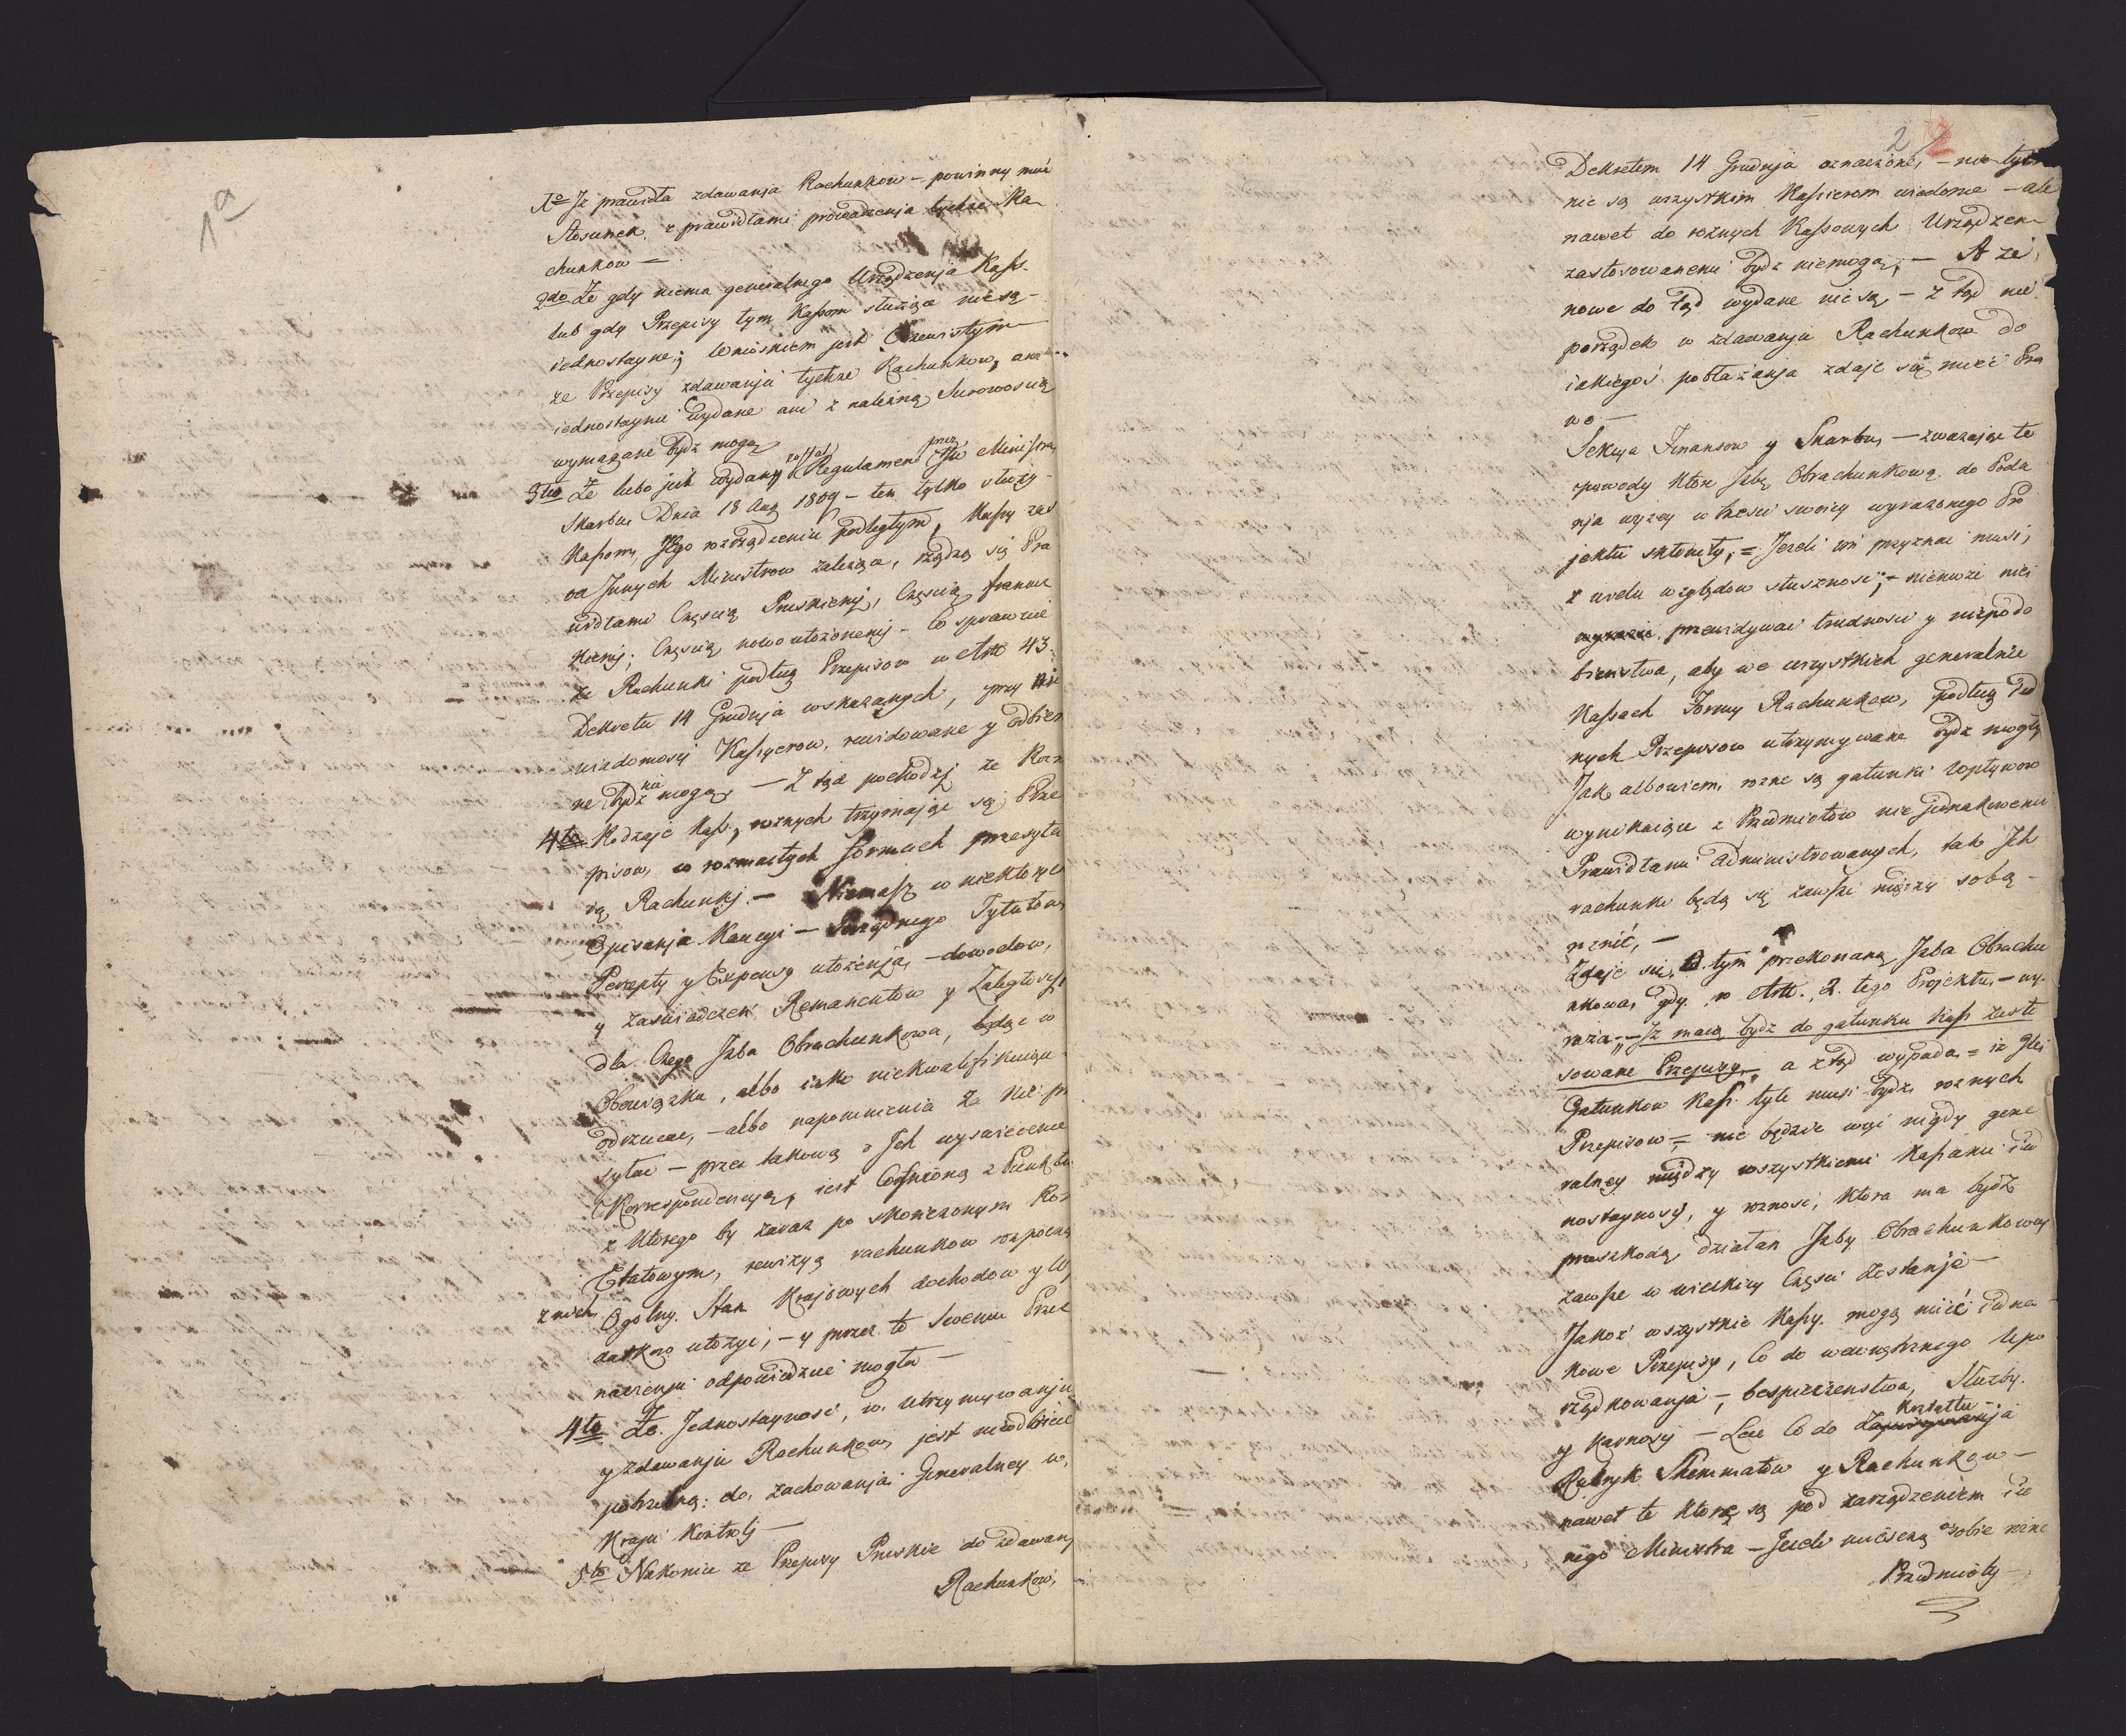 1a
1o Iż prawidła zdawanja Rachunkow – powinny mieć
Stosunek z prawidłami prowadzenja tychże Ra
chunkow –
2do Że gdy niema generalnego Urządzenja Kass.
lub gdy Przepisy tym Kassom służące nie są –
iednostayne; Wnioskiem jest Oczewistym
że Przepisy zdawanja tychże Rachunkow, ani
iednostaynie wydane ani z należną Surowoscią
wymagane bydź mogą
3tio Że lubo jest wydany został Regulament przez JW Ministra
Skarbu Dnia 18 Aug 1809 – ten tylko służy –
Kassom, Jego rozrządzeniu podległym, Kassy zaś
od Jnnych Ministrow zależące, rządzą się Pra
widłami Częscią Pruskiemj, Częscią francuz
kiemj; Częscią nowo ułożonemj – Co sprawuie
że Rachunki podług Przepisow w Artt 43.
Dekretu 14 Grudnja wskazanych, przy nie
wiadomosci Kassyerow, rewidowane y odbiera
ne bydź nie mogą, – Z tąd pochodzj że Rozn
4to Rodzaje Kass, roznych trzymając się Prze
pisow, w rozmaitych formach przesyła
ią Rachunkj. – Niemasz w niektorych
Opisanja Kaucyi – Porządnego Tytułow
Percepty y Expensy ułożenja, – dowodow,
y zaświadczeń Remanentow y Zaległoscj,
dla Czego Jzba Obrachunkowa, będąc w
Obowiązku, albo iako niekwalifikuiące
odrzucać, – albo napomnienia za nie prze
syłać – przez takową o Jch wyswiecenie
Korrespondencyą, iest Cofnioną z Punktu
z Ktorego by zaraz po skończonym Rok
Etatowym, rewizyą rachunkow rozpoczą
z nich Ogolny Stan Krajowych dochodow y Wy
datkow ułożyć, – y przez to Swemu Prze
naczenju odpowiedzieć mogła –
4to Że Jednostaynosć, w utrzymywanju
y zdawanju Rachunkow, jest nieodbicie
potrzebną do zachowanja Generalney w
Kraju Kontrolj –
5to Nakoniec że Przepisy Pruskie do zdawanj
Rachunkow,
2 2
Dekretem 14 Grudnja oznaczone, – nie tylko
nie są wszystkim Kassierom wiadome – ale
nawet do roznych Kassowych Urządzen
zastosowanemi bydź niemogą; – A że,
nowe do tąd wydane nie są – z tąd nie
porządek w zdawanju Rachunkow do
iakiegoś pobłażanja zdaje się mieć Pra
wo –
Sekcya Finansow y Skarbu, – zważając te
powody Ktore Jzbę Obrachunkową do Poda
nja wyzey w tresci swoiey wyrażonego Pro
jektu skłoniły, = Jezeli im przyznać musi,
z wielu względow słusznosć, – niemoże nie
przewidywać trudnosci y niepodo
bieństwa, aby we wszystkich generalnie
Kassach Formy Rachunkow, podług Jed
nych Przepisow utrzymywane bydź mogły
Jak albowiem rozne są gatunki wpływow
wynikaiące z Przedmiotow nie jednakowemi
Prawidłami administrowanych, tak Jch
rachunki będą się zawsze między sobą –
roznić, –
Zdaje się, O tym przekonaną Jzba Obrachu
nkowa, gdy w Artt. 2. tego Projektu – wy
raża – „Jż maią bydź do gatunku Kass zasto
sowane Przepisy“, a ztąd wypada = iz Jle
Gatunkow Kass tyle musi bydź roznych
Przepisow = nie będzie więc nigdy gene
ralney między wszystkiemi Kassami ied
nostaynosci, y roznosć, Ktora ma bydź
przeszkodą działan Jzby Obrachunkowey
zawsze w wielkiey Częsci zostanje –
Jakoż wszystkie Kassy mogą mieć iedna
kowe Przepisy, Co do wewnętrznego Upo
rządkowanja –, bespieczenstwa, Służby.
y Karnosci – Lecz Co do Kształtu
Rubryk Shemmatow y Rachunkow –
nawet te Ktore są pod zarządzeniem ie
nego Ministra – Jezeli mieszczą w sobie rozne
Przedmioty –